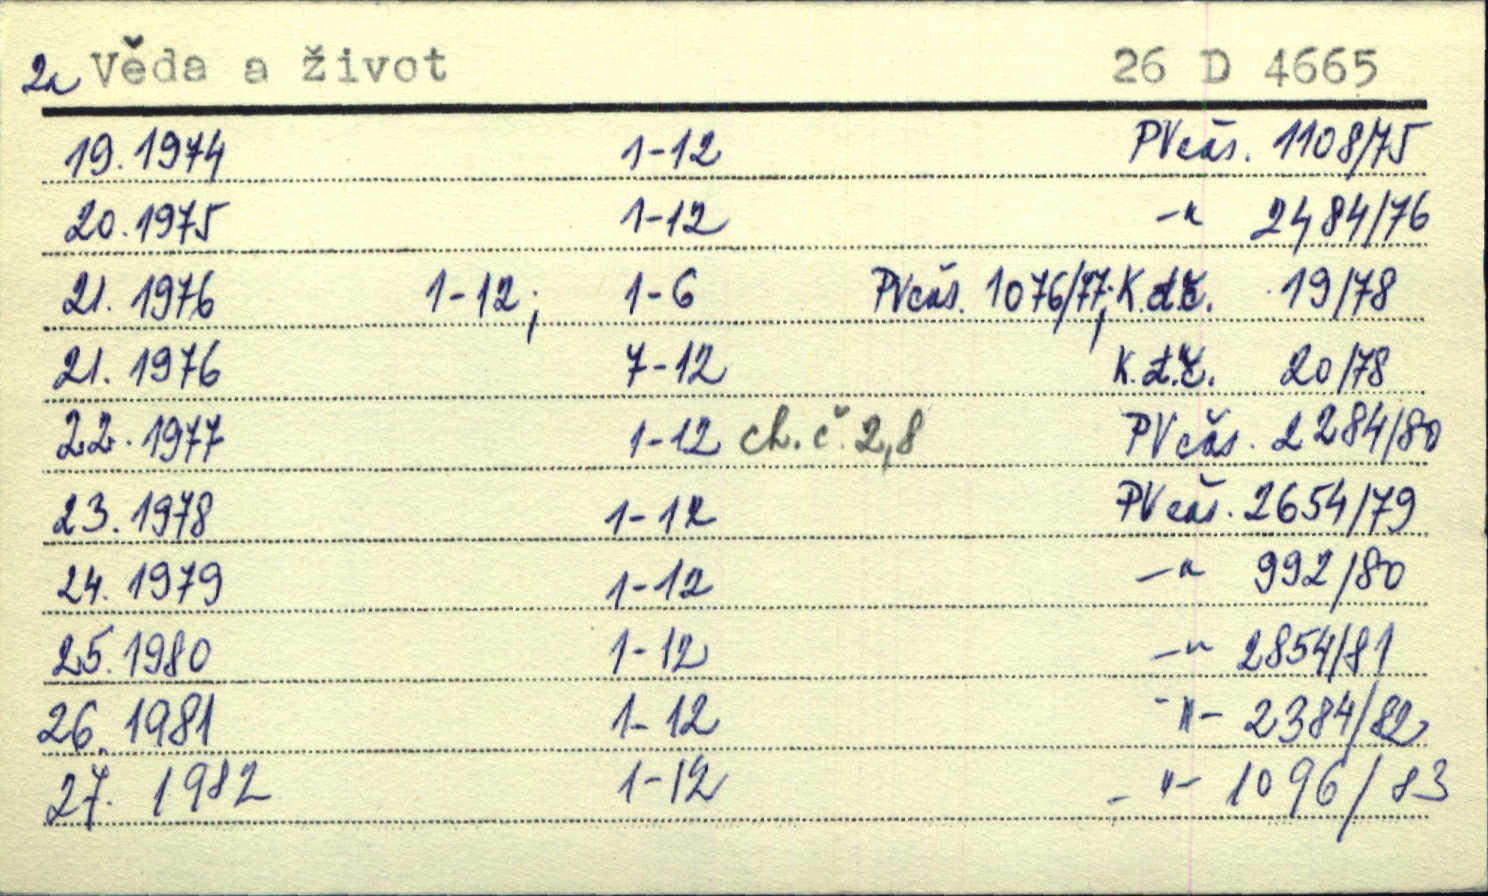 2a Věda a život 26 D 4665
19. 1974 1-12 PV čas. 1108/75
20. 1975 1-12 -"- 2484/76
21. 1976 1-12; 1-6 PV čas. 1076/77; K.d.č. 19/78
21. 1976 7-12 K.d.č. 20/78
22. 1977 1-12 ch. č. 2,8 PV čas. 2284/80
23. 1978 1-12 PV čas. 2654/79
24. 1979 1-12 -"- 992/80
25. 1980 1-12 -"- 2854/81
26. 1981 1-12 -"- 2384/82
27. 1982 1-12 -"- 1096/83